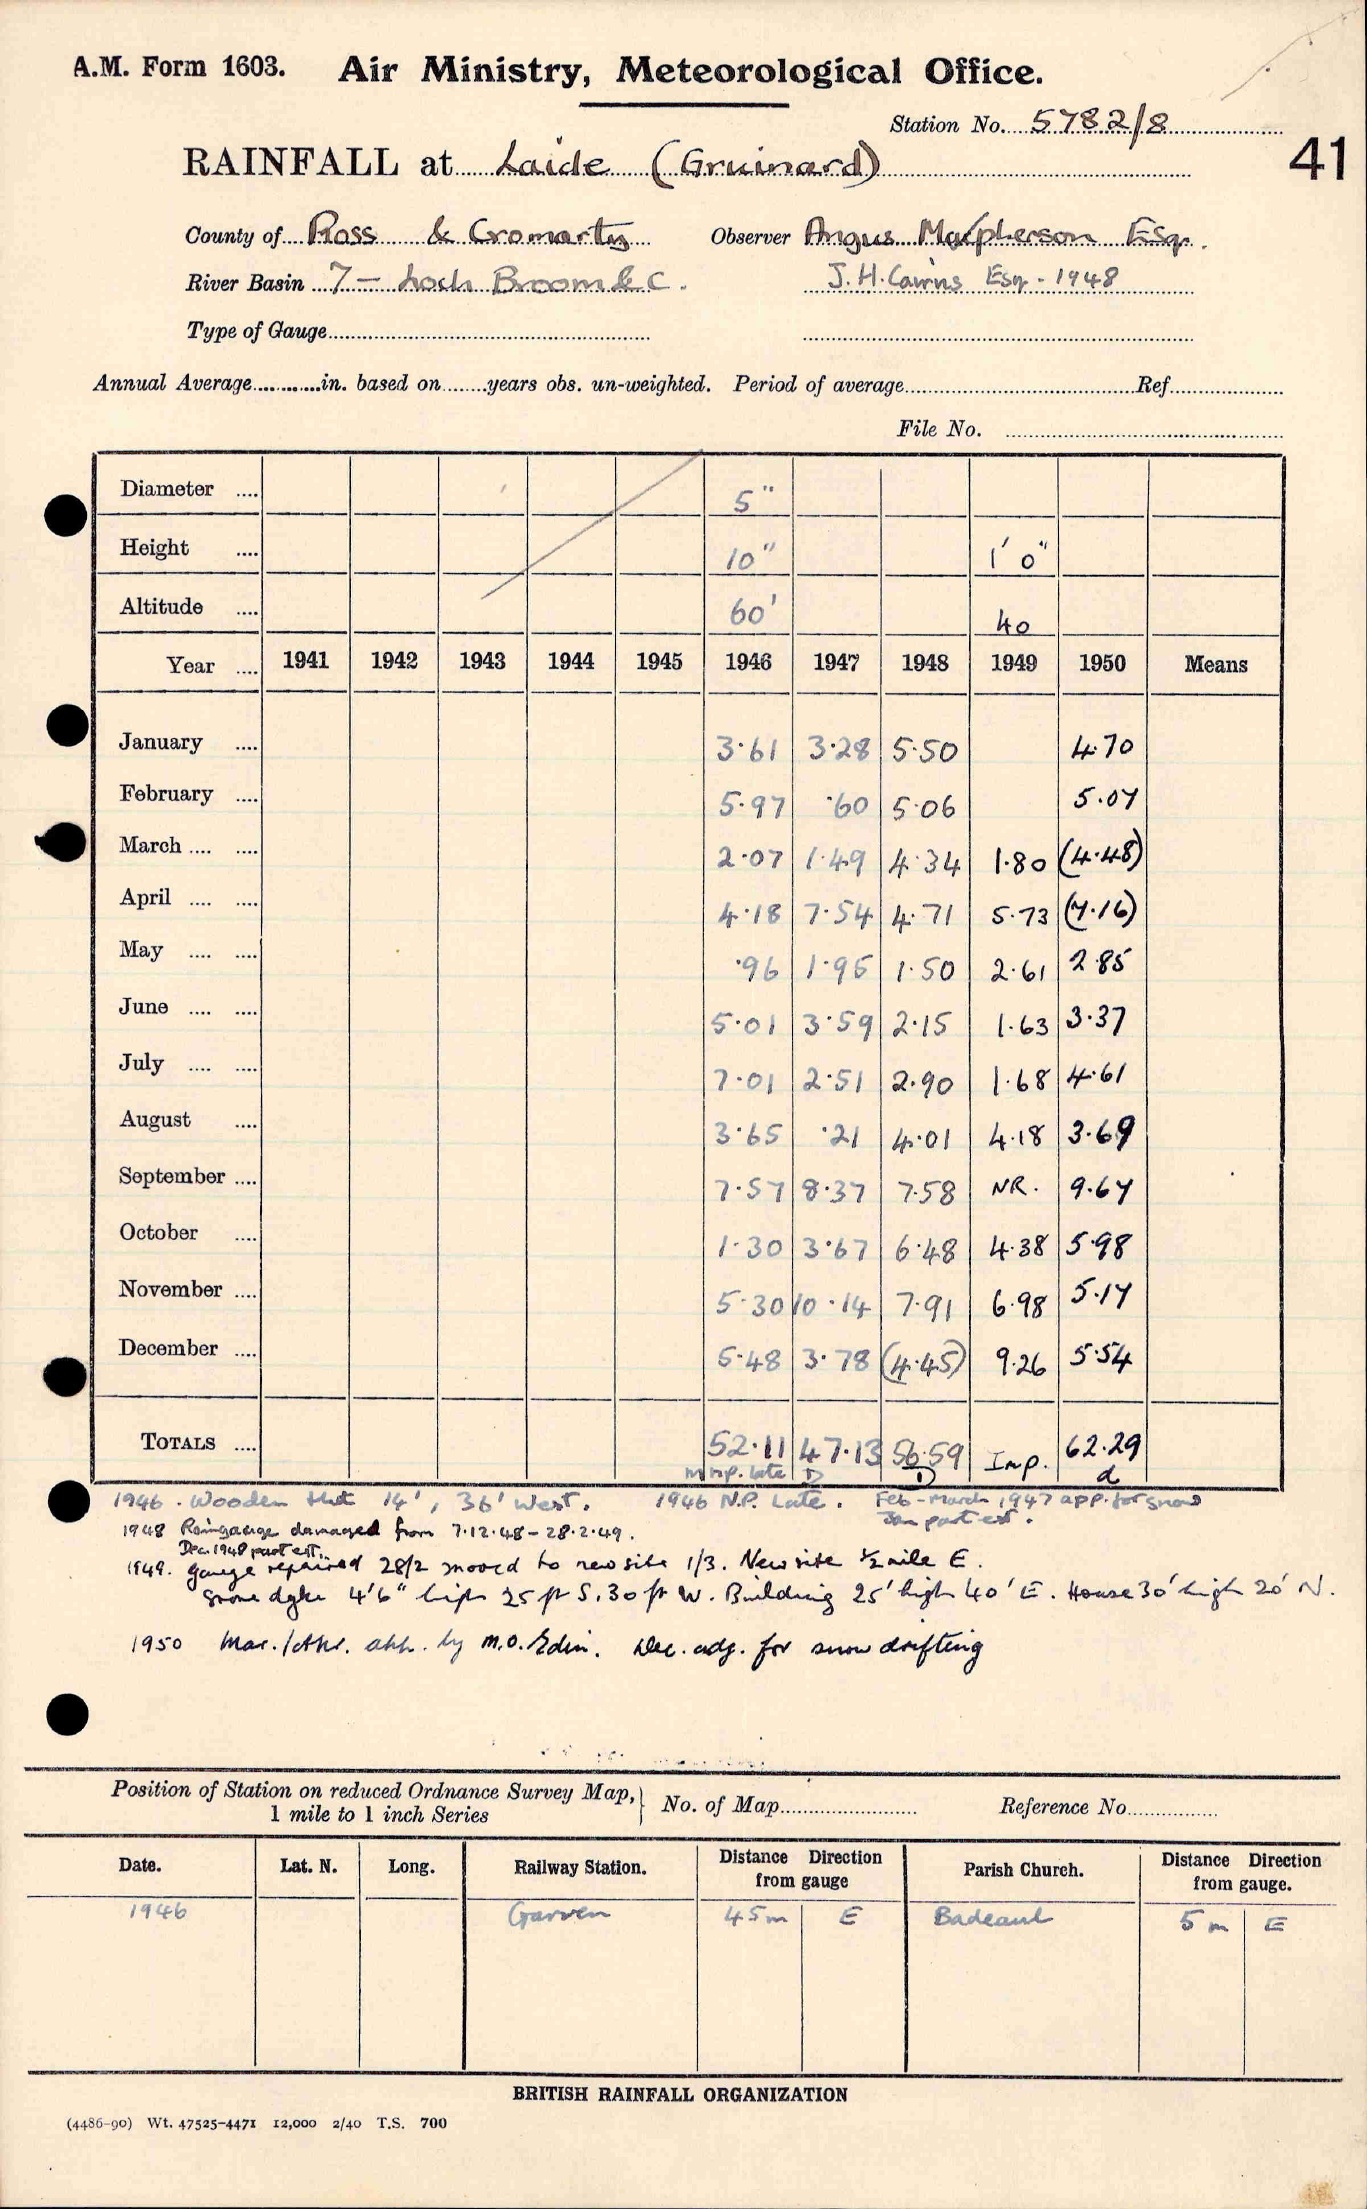 A.M. Form 1603. Air Ministry, Meteorological Office.
Station No. 5782/8
41
RAINFALL at Laide (Gruinard)
County of Ross & Cromarty Observer Angus Macpherson Esq.
River Basin 7 – Loch Broom &c. J.H. Cairns Esq - 1948
Type of Gauge
Annual Average in. based on years obs. un-weighted. Period of average Ref
File No.
Diameter 5"
Height 10" 1' 0"
Altitude 60' 40
Year 1941 1942 1943 1944 1945 1946 1947 1948 1949 1950 Means
January 3·61 3·28 5·50 4·70
February 5·97 ·60 5·06 5·07
March 2·07 1·49 4·34 1·80 (4·48)
April 4·18 7·54 4·71 5·73 (7·16)
May ·96 1·95 1·50 2·61 2·85
June 5·01 3·59 2·15 1·63 3·37
July 7·01 2·51 2·90 1·68 4·61
August 3·65 ·21 4·01 4·18 3·69
September 7·57 8·37 7·58 NR. 9·67
October 1·30 3·67 6·48 4·38 5·98
November 5·30 10·14 7·91 6·98 5·17
December 5·48 3·78 (4·45) 9·26 5·54
TOTALS 52·11 47·13 56·59 Imp. 62·29
late D D d
1946. Wooden Hut 14', 36' West. 1946 N.P. Late. Feb – March 1947 app. for snow
Jan part est.
1948 Raingauge damaged from 7.12.48 – 28.2.49.
Dec. 1948 part est.
1949. Gauge repaired 28/2 moved to new site 1/3. New site ½ mile E.
Stone dyke 4'6" high 25 ft S. 30 ft W. Building 25' high 40' E. House 30' high 20' N.
1950 Mar./Apr. by M.O. Edin. Dec. adj. for snow drifting
Position of Station on reduced Ordnance Survey Map, 1 mile to 1 inch Series } No. of Map Reference No.
Date. Lat. N. Long. Railway Station. Distance Direction from gauge Parish Church. Distance Direction from gauge.
1946 Garven 45m E Badcaul 5m E
BRITISH RAINFALL ORGANIZATION
(4486-90) Wt. 47525-4471 12,000 2/40 T.S. 700